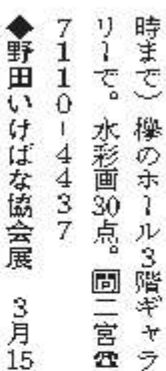 時まで)欅のホール3階ギャラ
リーで。水彩画30点。問二宮☎
7110-4437
◆野田いけばな協会展 3月15